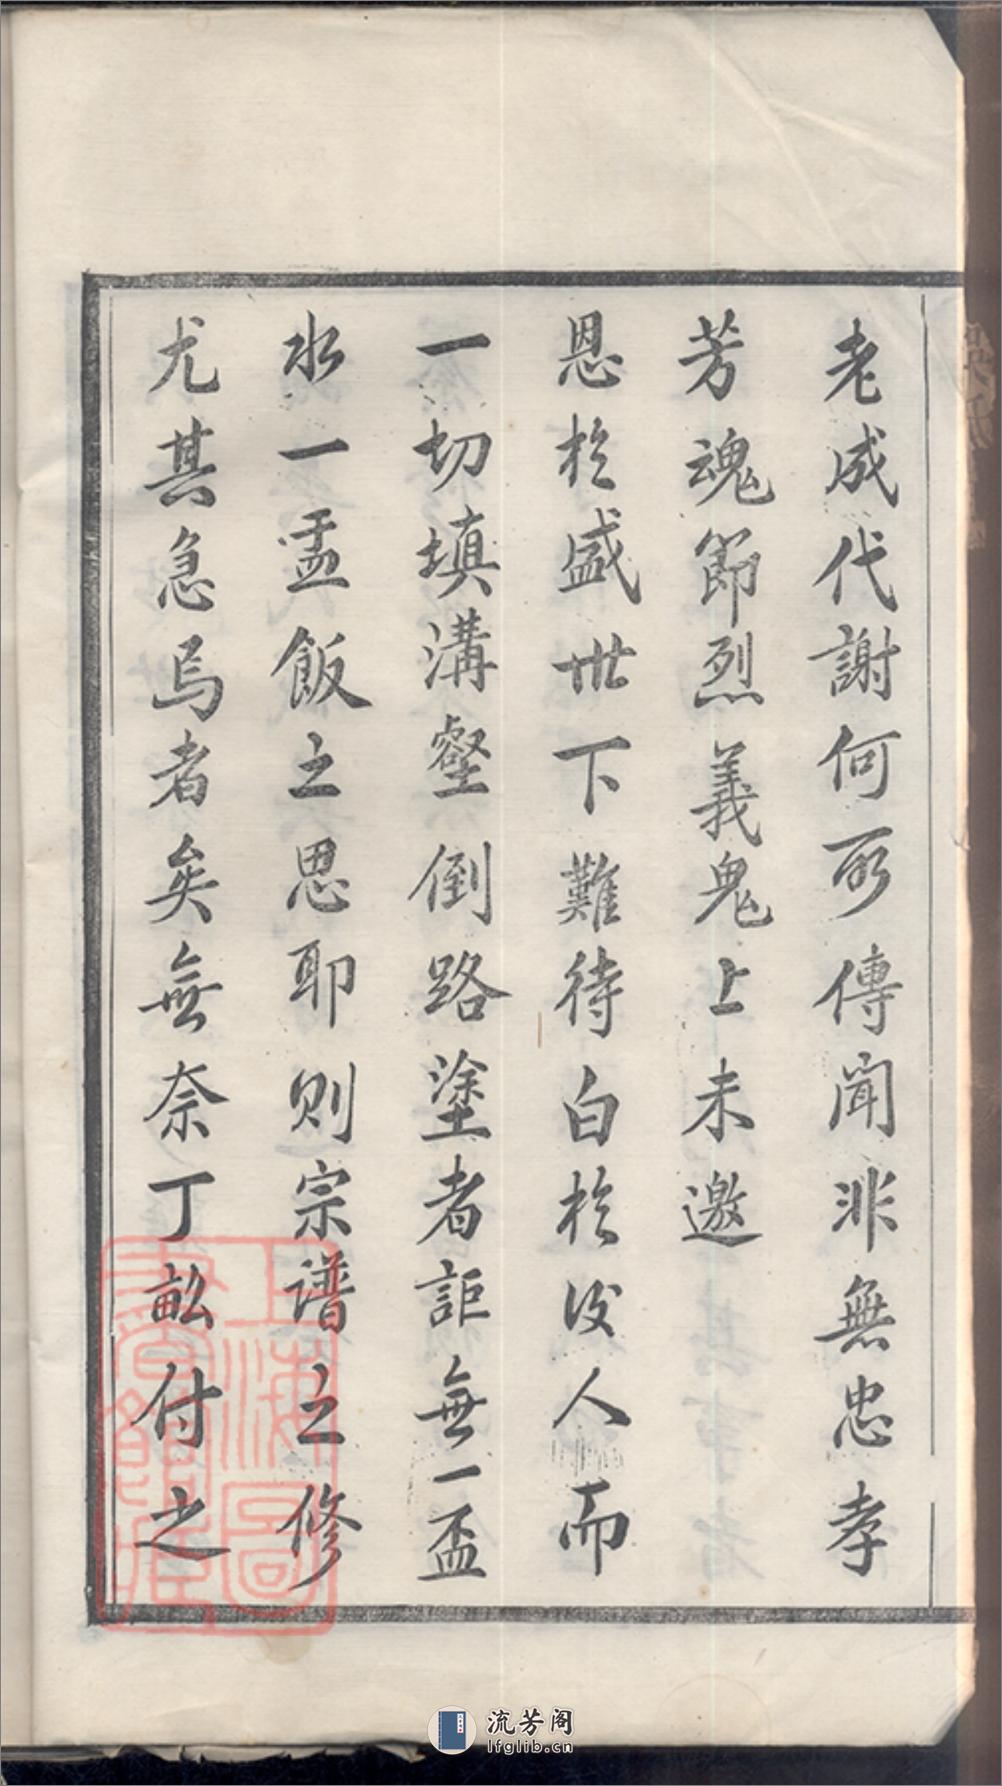 老成代謝何所傳聞非無忠孝
芳魂節烈義鬼上未邀
恩於盛世下難待白於後人而
一切填溝壑倒路塗者詎無一盃
水一盂飯之思耶則宗譜之修
尤其急焉者矣無奈丁畝付之
上海圖書館藏
流芳阁
lfglib.cn